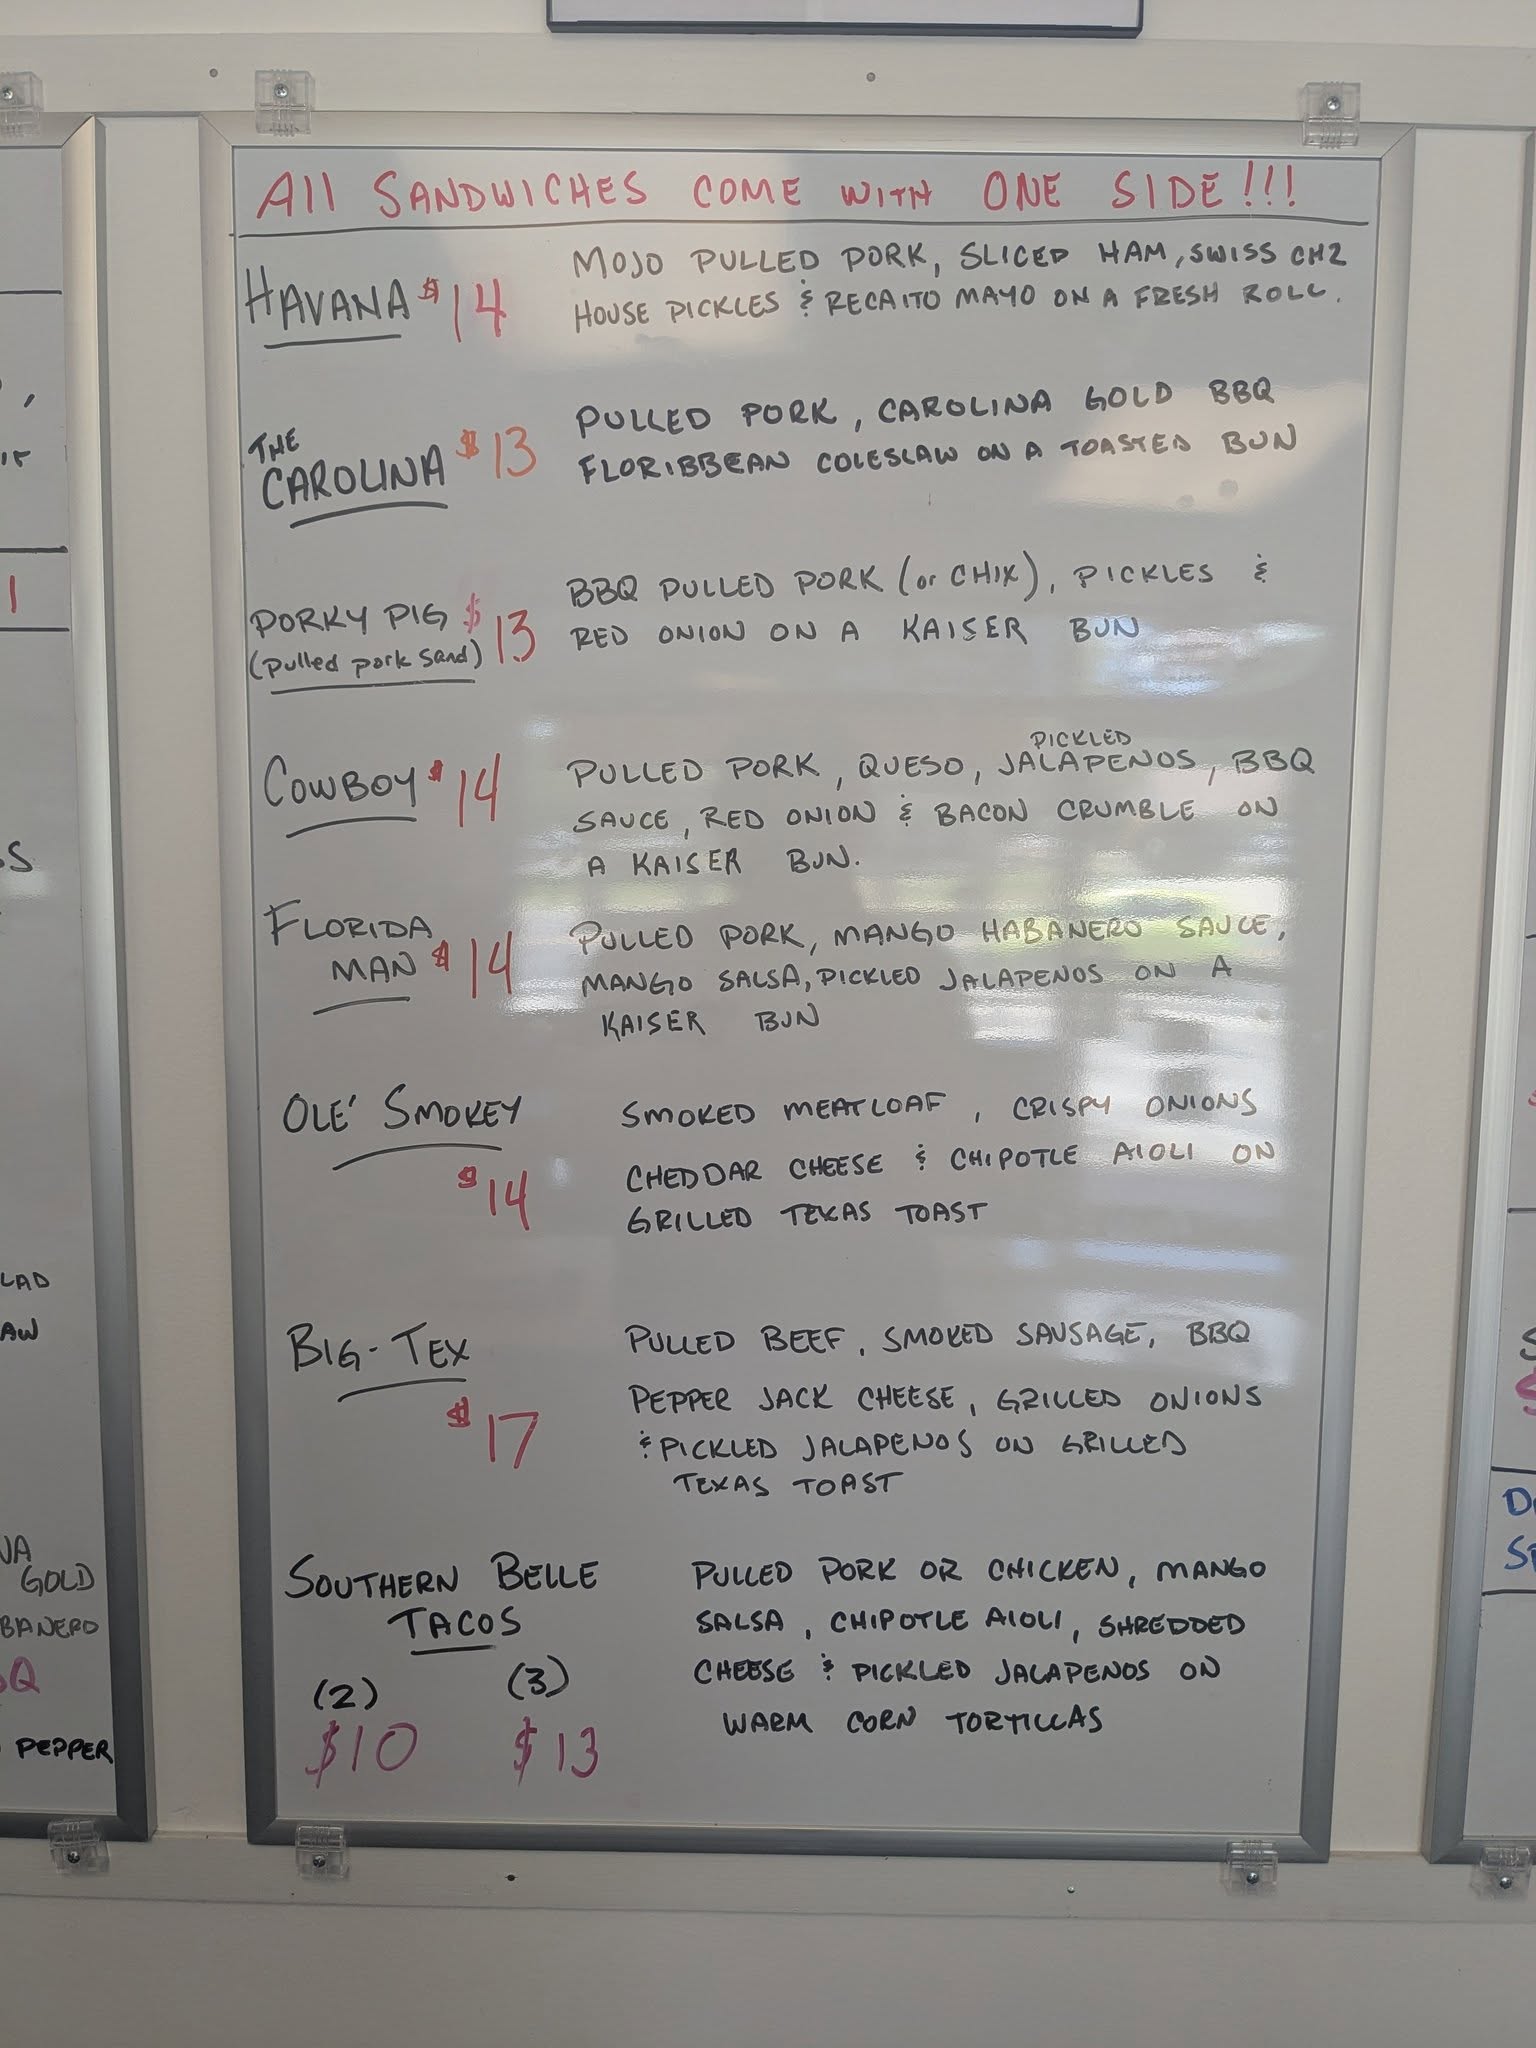 All SANDWICHES COME WITH ONE SIDE!!!
HAVANA $14
MOJO PULLED PORK, SLICED HAM, SWISS CHZ
HOUSE PICKLES & RECAITO MAYO ON A FRESH ROLL.
THE
CAROLINA $13
PULLED PORK, CAROLINA GOLD BBQ
FLORIBBEAN COLESLAW ON A TOASTED BUN
PORKY PIG $13
(pulled pork sand)
BBQ PULLED PORK (or CHIX), PICKLES &
RED ONION ON A KAISER BUN
COWBOY $14
PICKLED
PULLED PORK, QUESO, JALAPENOS, BBQ
SAUCE, RED ONION & BACON CRUMBLE ON
A KAISER BUN.
FLORIDA
MAN $14
PULLED PORK, MANGO HABANERO SAUCE,
MANGO SALSA, PICKLED JALAPENOS ON A
KAISER BUN
OLE' SMOKEY
$14
SMOKED MEATLOAF, CRISPY ONIONS
CHEDDAR CHEESE & CHIPOTLE AIOLI ON
GRILLED TEXAS TOAST
BIG-TEX
$17
PULLED BEEF, SMOKED SAUSAGE, BBQ
PEPPER JACK CHEESE, GRILLED ONIONS
& PICKLED JALAPENOS ON GRILLED
TEXAS TOAST
SOUTHERN BELLE
TACOS
(2) (3)
$10 $13
PULLED PORK OR CHICKEN, MANGO
SALSA, CHIPOTLE AIOLI, SHREDDED
CHEESE & PICKLED JALAPENOS ON
WARM CORN TORTILLAS
GOLD
PEPPER